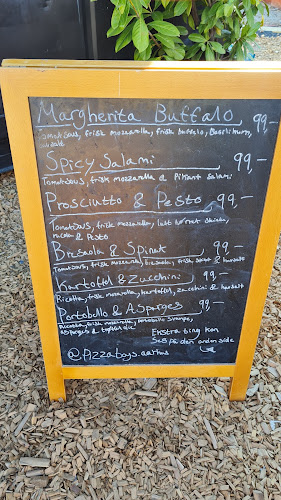 Margherita Buffalo 99,-
Tomatsaus, frisk mozzarella, frisk buffalo, Basilikum,
Spicy Salami 99,-
Tomatsaus, frisk mozzarella & Pikant Salami
Prosciutto & Pesto 99,-
Tomatsaus, frisk mozzarella, lufttørret skinke,
rucola & Pesto
Bresaola & Spinat 99,-
Tomatsaus, frisk mozzarella, Bresaola, frisk spinat &
Kartoffel & Zucchini 99,-
Ricotta, frisk mozzarella, kartoffel, zucchini &
Portobello & Asparges 99,-
Ricotta, frisk mozzarella, portobello svampe,
asparges & trøffelolie
Ekstra ting kan
ses på den anden side
@pizzaboys.aarhus